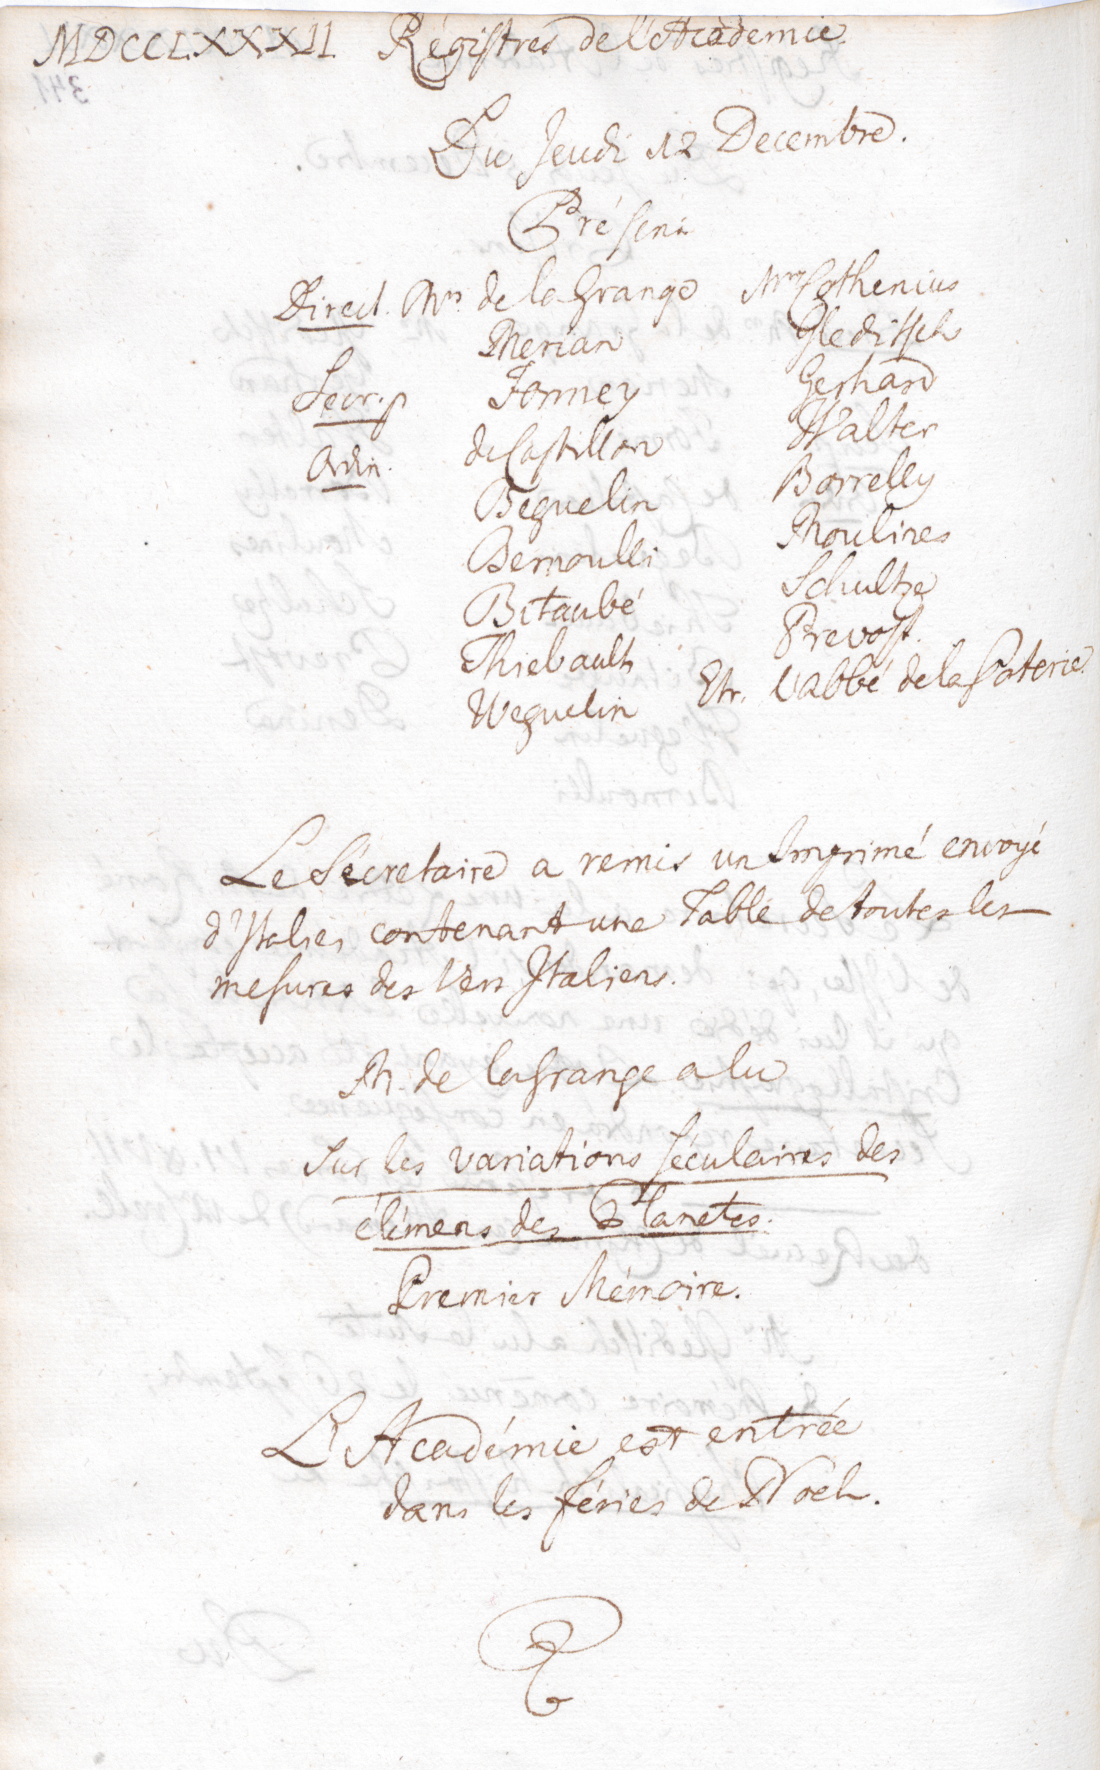 MDCCLXXXII Régistres de l'Academie.
Du Jeudi 12 Decembre.
Présens
Direct. Mrs de la Grange
Merian
Secr. p Formey
Ordin. de Castillon
Beguelin
Bernoulli
Bitaubé
Thiebault
Weguelin
Mrs Cothenius
Gleditsch
Gerhard
Walter
Borrelly
Moulines
Schultze
Prevost.
Etr. l'abbé de la
Le Sécretaire a remis un Imprimé envoyé
d'Italie, contenant une Table de toutes les
mesures des Vers Italiens.
M. de la Grange a lu
Sur les variations séculaires des
élémens des Planetes.
Premier Mémoire.
L'Académie est entrée
dans les féries de Noël.